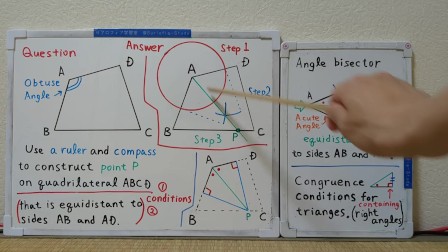 Question
Obtuse
Angle
A
D
B
C
Use a ruler and compass
to construct point P
on quadrilateral ABCD ①
that is equidistant to
sides AB and AD.
conditions
②
Answer
Step1
A
D
Step2
B
Step3
P
C
A
D
B
P
C
Angle bisector
A
Acute
Angle
equidis
to sides AB and
Congruence
conditions for
trianges.
(containing
right
angles)